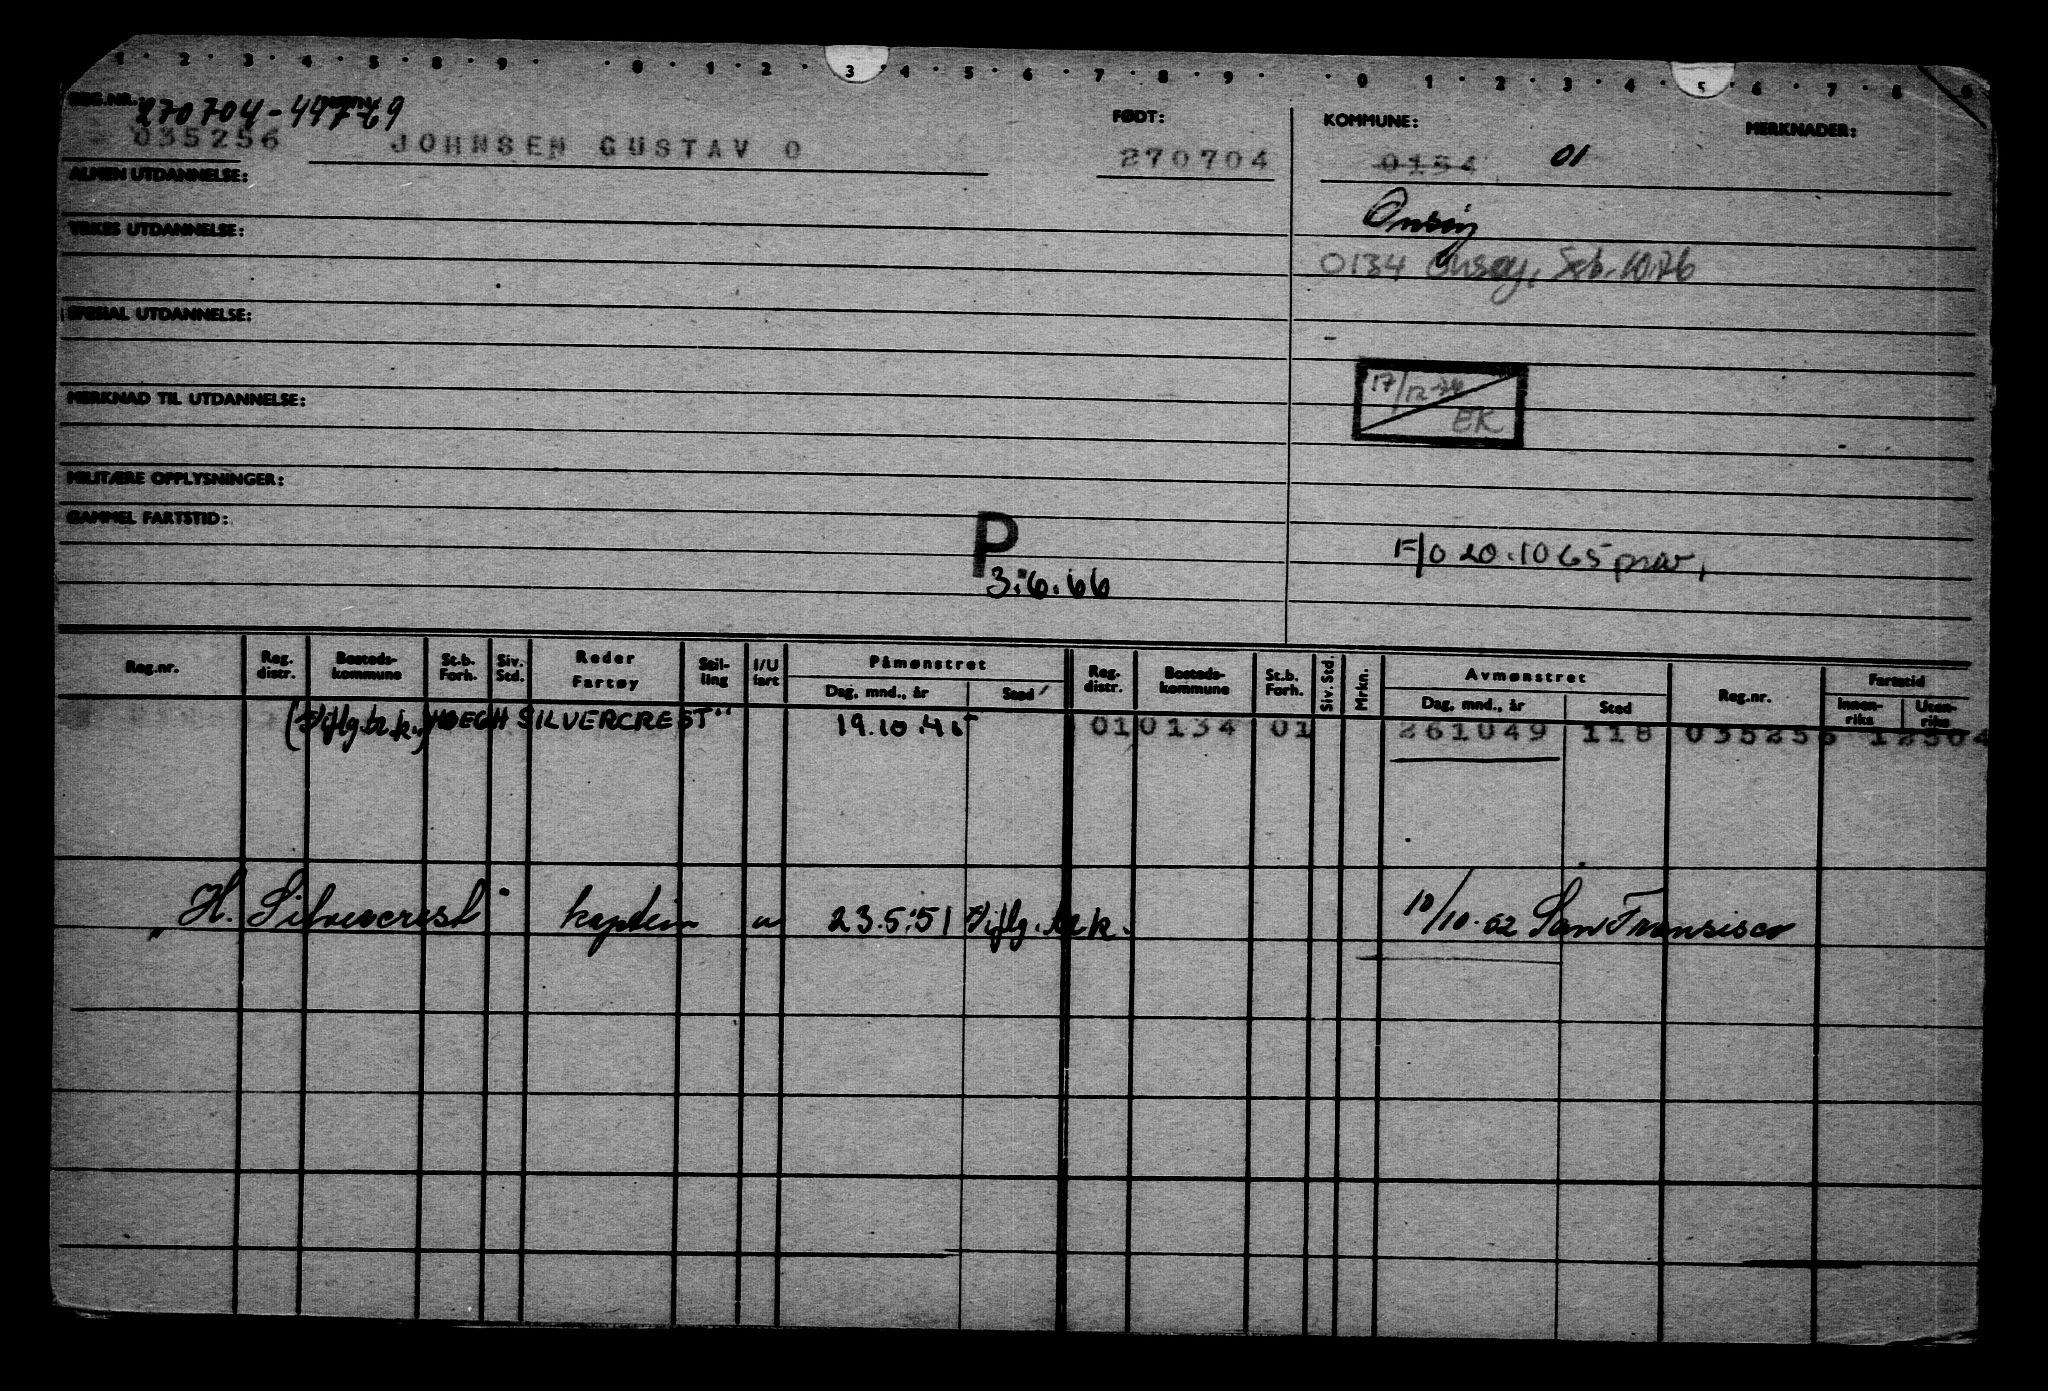 1 · 2 · 3 · 4 · 5 · 8 · 9 · 0 · 1 · 2 · 3 · 4 · 5 · 6 · 7 · 8 · 9 · · 0 1 · 2 · 3 · 4 · 5 · 6 · 7 · 8 · 9
REG.NR.: 270704-44769 FØDT: KOMMUNE: MERKNADER:
035256 JOHNSEN GUSTAV O 270704 0134 01
ALMEN UTDANNELSE:
Onsøy
YRKES UTDANNELSE:
0134 Onsøy, Feb. 10.76
SPESIAL UTDANNELSE:
17/12-74
EK
MERKNAD TIL UTDANNELSE:
MILITÆRE OPPLYSNINGER:
GAMMEL FARTSTID:
P
3.6.66
F/O 20.10 65 prov,
Reg.nr. Reg. distr. Bosteds-kommune St.b. Forh. Siv. Std. Reder Fartøy Stil-ling I/U fart Påmønstret Dag, mnd., år Sted Reg. distr. Bosteds-kommune St.b. Forh. Siv. Std. Mrkn. Avmønstret Dag, mnd., år Sted Reg.nr. Fartstid Innen-riks Uten-riks
HOEGH SILVERCREST" 19.10.46 01 0134 01 261049 118 035256 12504
"H. Silvercrest" kaptein u 23.5.51 10/10.62 San Fransisco